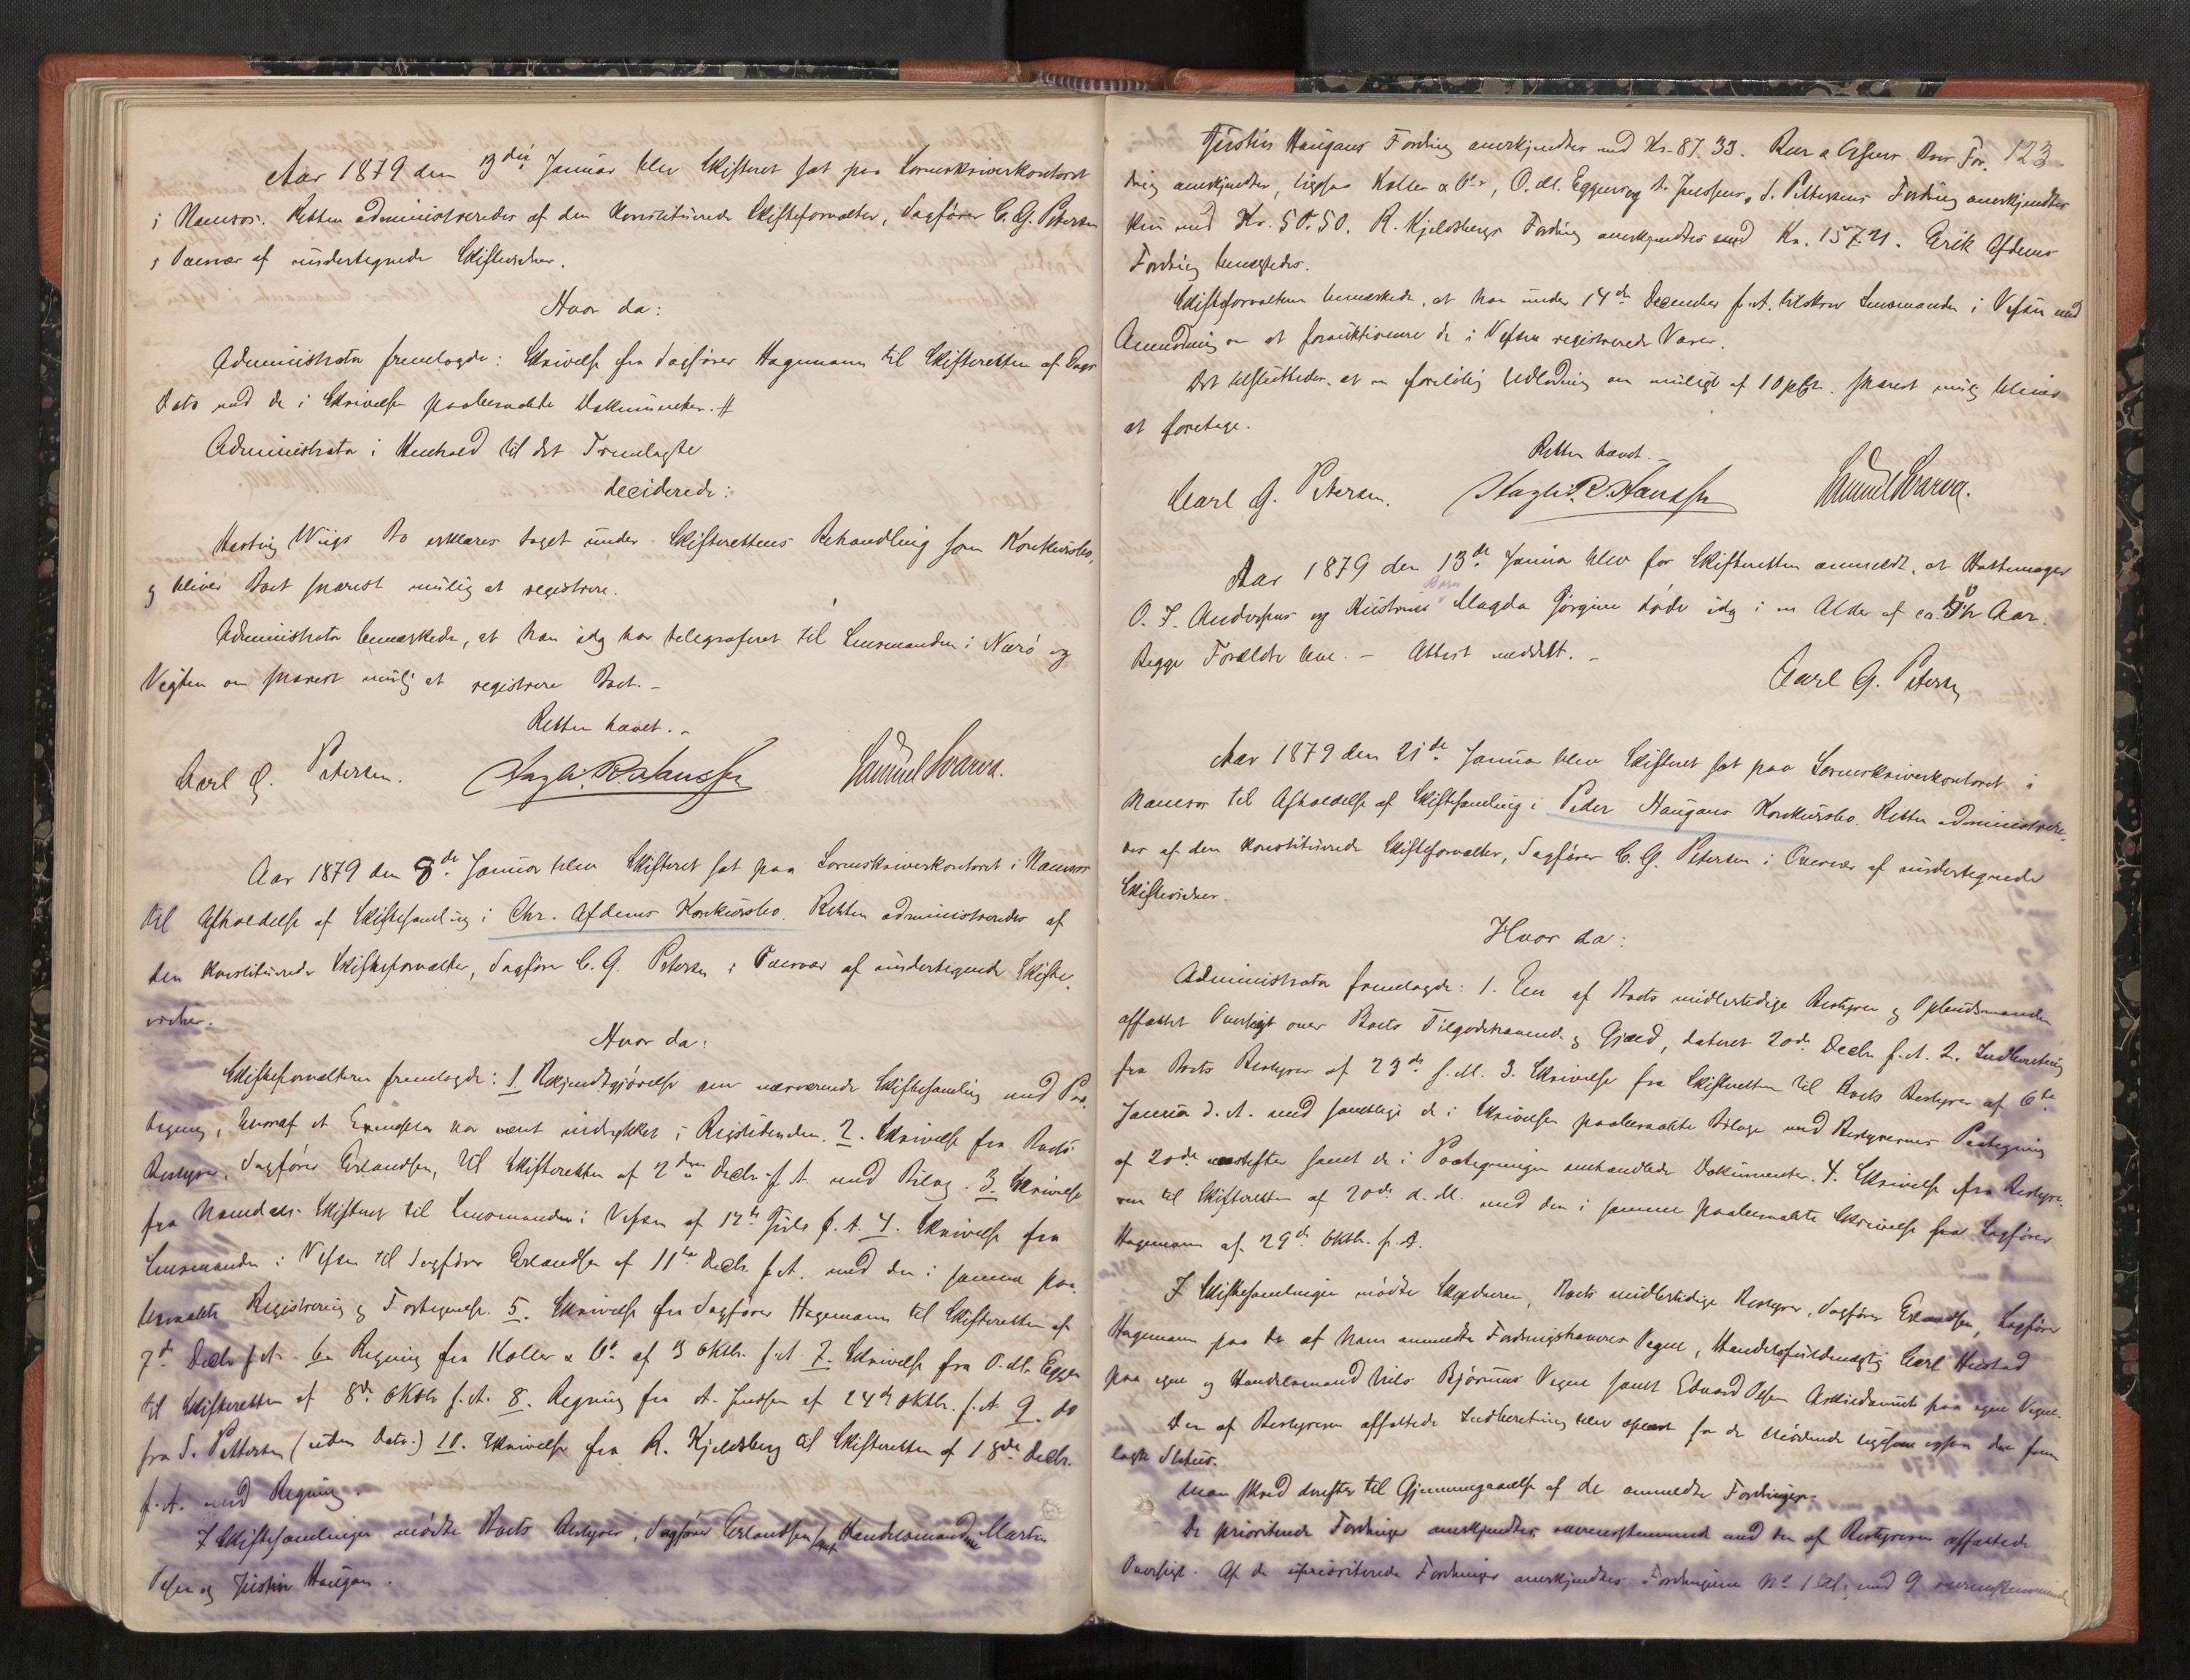 Aar 1879 den 3die Januar blev Skifteret sat paa Sorenskriverkontoret
i Namsos. Retten administreredes af den konstituerede Skifteforvalter, Sagfører C. G. Petersen
i Overvær af undertegnede Skiftevidner.
Hvor da:
Administrator fremlagde: Skrivelse fra Sagfører Hagemann til Skifteretten af Dags
Dato med de i Skrivelsen paaberaabte Dokumenter. #
Administrator i Henhold til det Fremlagte
deciderede:
Hartvig Wiigs Bo erklæres taget under Skifterettens Behandling som Konkursbo,
og bliver Boet snarest mulig at registrere.
Administrator bemærkede, at han idag har telegraferet til Lensmanden i Nærø og
Vegten om snarest mulig at registrere Boet. -
Retten hævet. -
Carl G. Petersen. R. Hanssen Samuel Svarva.
Aar 1879 den 8de Januar blev Skifteret sat paa Sorenskriverkontoret i Namsos
til Afholdelse af Skiftesamling i Chr. Afdems Konkursbo. Retten administreredes af
den konstituerede Skifteforvalter, Sagfører C. G. Petersen i Overvær af undertegnede Skifte-
vidner.
Hvor da:
Skifteforvalteren fremlagde: 1. Bekjendtgjørelse om nærværende Skiftesamling med Paa-
tegning, hvoraf et Exemplar har været indrykket i Rigstidenden. 2. Skrivelse fra Boets
Bestyrer, Sagfører Erlandsen, til Skifteretten af 2den Decbr. f. A. med Bilag. 3. Skrivelse
fra Namdals Skifteret til Lensmanden i Vefsen af 12te f. A. 4. Skrivelse fra
Lensmanden i Vefsen til Sagfører Erlandsen af 11te Decbr. f. A. med den i samme paa-
beraabte Registrering og Fortegnelse. 5. Skrivelse fra Sagfører Hagemann til Skifteretten af
7de Decbr. f. A. 6. Regning fra Koller & Co. af 3 Oktb. f. A. 7. Skrivelse fra O. M. Eggen
til Skifteretten af 8de Oktbr. f. A. 8. Regning fra A. Juulsen af 24de Oktb. f. A. 9. do
fra S. Pettersen (uden Dato.) 10. Skrivelse fra R. Kjeldsberg til Skifteretten af 18de Decbr.
f. A. med Regning.
I Skiftesamlingen mødte Boets Bestyrer, Sagfører Erlandsen samt Handelsmændene Martin
Olsen og Justin Haugan.
123
Justin Haugans Fordring anerkjendtes med Kr. 87.33. For-
dring anerkjendtes, ligesaa Koller & Co., O. M. Eggens og A. Juulsens, S. Pettersens Fordring anerkjendtes
kun med Kr. 50.50. R. Kjeldsbergs Fordring anerkjendtes med Kr. 157.21. Erik Afdems
Fordring benægtedes.
Skifteforvalteren bemærkede, at han under 14de December f. A. tilskrev Lensmanden i Vefsen med
Anmodning om at forauktionere de i Vefsen registrerede Varer.
Det besluttedes at en foreløbig Udlodning om muligt af 10 pCt. snarest mulig bliver
at foretage.
Retten hævet. -
Carl G. Petersen. R. Hanssen Samuel Svarva.
Aar 1879 den 13de Januar blev for Skifteretten anmeldt, at Hattemager
O. J. Anderssens og Hustrues Barn Magda Jørgine døde idag i en Alder af ca. Aar.
Begge Forældre leve. - Attest meddelt. -
Carl G. Petersen
Aar 1879 den 21de Januar blev Skifteret sat paa Sorenskriverkontoret i
Namsos til Afholdelse af Skiftesamling i Peder Haugans Konkursbo. Retten administrere-
des af den konstituerede Skifteforvalter, Sagfører C. G. Petersen i Overvær af undertegnede
Skiftevidner.
Hvor da:
Administrator fremlagde: 1. En af Boets midlertidige Bestyrer og Opbudsmanden
affattet Oversigt over Boets Tilgodehavende og Gjæld, dateret 20de Decbr. f. A. 2. Indberetning
fra Boets Bestyrer af 23de f. M. 3. Skrivelse fra Skifteretten til Boets Bestyrer af 6te
Januar d. A. med samtlige de i Skrivelsen paaberaabte Bilage med Bestyrerens Paategning
af 20de samt de i Paategningen omhandlede Dokumenter. 4. Skrivelse fra Bestyre-
ren til Skifteretten af 20de d. M. med den i samme paaberaabte Skrivelse fra Sagfører
Hagemann af 29de Oktb. f. A.
I Skiftesamlingen mødte Boets midlertidige Bestyrer, Sagfører Erlandsen, Sagfører
Hagemann paa de af ham anmeldte Fordringshaveres Vegne, Handelsfuldmægtig Carl Hustad
paa egne og Handelsmand Nils Bjørums Vegne samt Edvard Olsen paa egne Vegne.
Den af Bestyreren affattede Indberetning blev oplæst for de Mødende ligesom ogsaa den frem-
lagte Status.
Man skred derefter til Gjennemgaaelse af de anmeldte Fordringer.
De prioriterede Fordringer anerkjendtes overensstemmende med den af Bestyreren affattede
Oversigt. Af de uprioriterede Fordringer anerkjendtes Fordringerne No 1 til med 9 overensstemmende